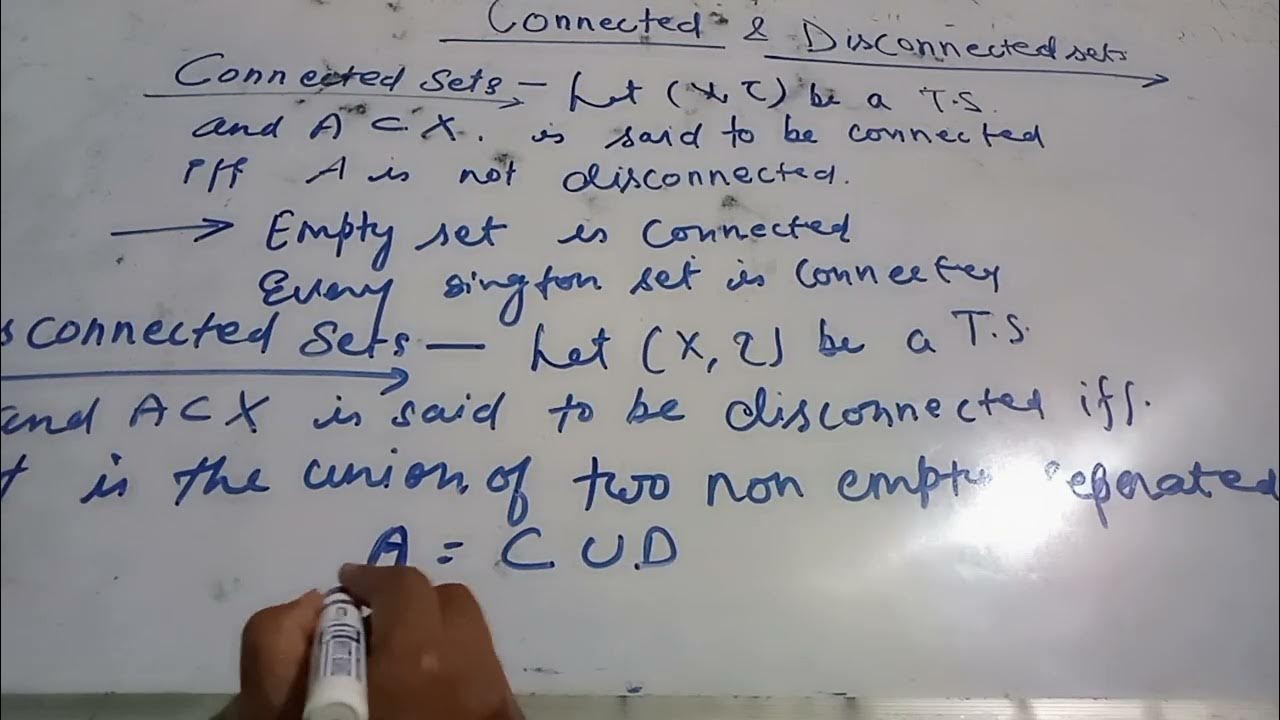 Connected & Disconnected sets
Connected Sets - Let (X, τ) be a T.S.
and A ⊂ X. is said to be connected
iff A is not disconnected.
→ Empty set is connected
Every sington set is connected
sconnected Sets — Let (X, τ) be a T.S.
and A ⊂ X is said to be disconnected iff.
t is the union of two non empty seperated
A = C ∪ D